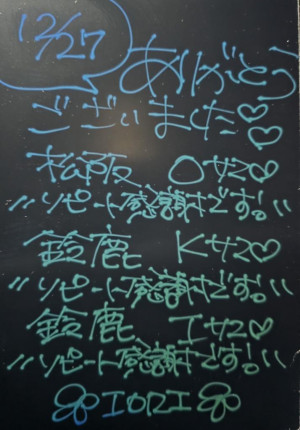 12/27
ありがとう
ございました♡♡
松阪 Oサン♡
〃リピート感謝です!〃
鈴鹿 Kサン♡
〃リピート感謝です!〃
鈴鹿 Iサン♡
〃リピート感謝です!〃
IORI